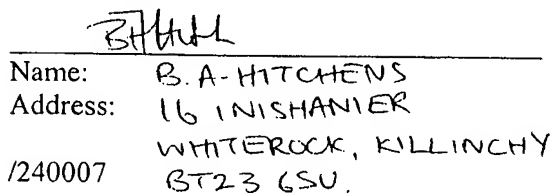 Name: B. A. HITCHENS
Address: 16 INISHANIER
WHITEROCK, KILLINCHY
/240007 BT23 6SU.